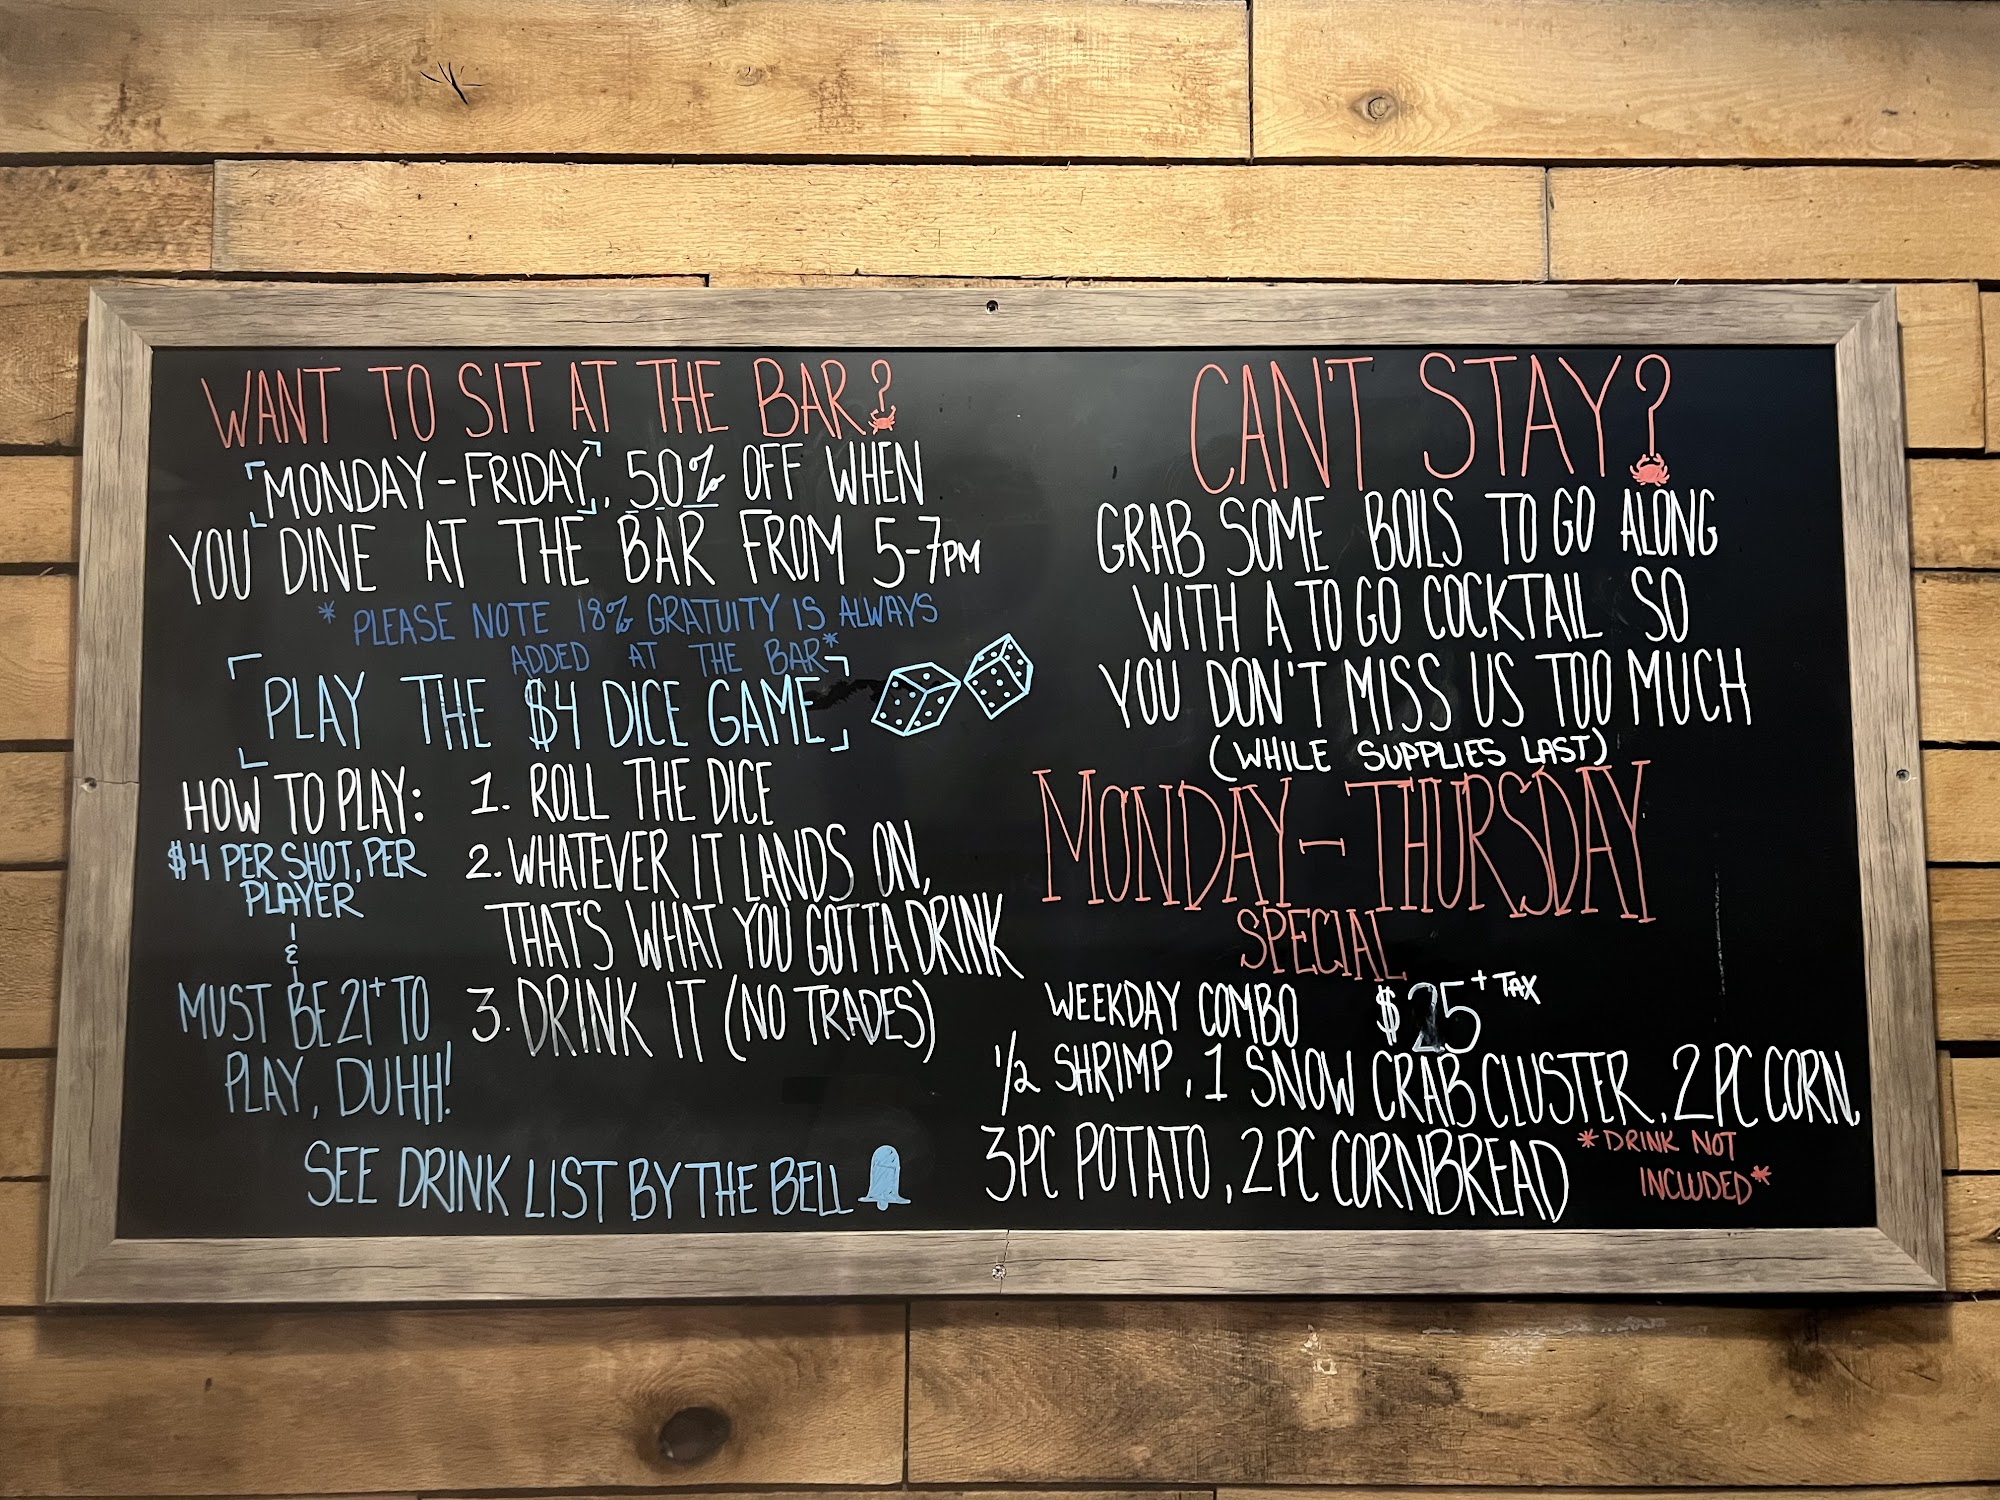 WANT TO SIT AT THE BAR?
MONDAY-FRIDAY, 50% OFF WHEN
YOU DINE AT THE BAR FROM 5-7PM
* PLEASE NOTE 18% GRATUITY IS ALWAYS
ADDED AT THE BAR*
PLAY THE $4 DICE GAME
HOW TO PLAY:
$4 PER SHOT, PER
PLAYER
&
MUST BE 21+ TO
PLAY, DUHH!
1. ROLL THE DICE
2. WHATEVER IT LANDS ON,
THAT'S WHAT YOU GOTTA DRINK
3. DRINK IT (NO TRADES)
SEE DRINK LIST BY THE BELL
CAN'T STAY?
GRAB SOME BOILS TO GO ALONG
WITH A TO GO COCKTAIL SO
YOU DON'T MISS US TOO MUCH
(WHILE SUPPLIES LAST)
MONDAY-THURSDAY
SPECIAL
WEEKDAY COMBO $25 + TAX
1/2 SHRIMP, 1 SNOW CRAB CLUSTER, 2PC CORN,
3PC POTATO, 2PC CORNBREAD
*DRINK NOT
INCLUDED*